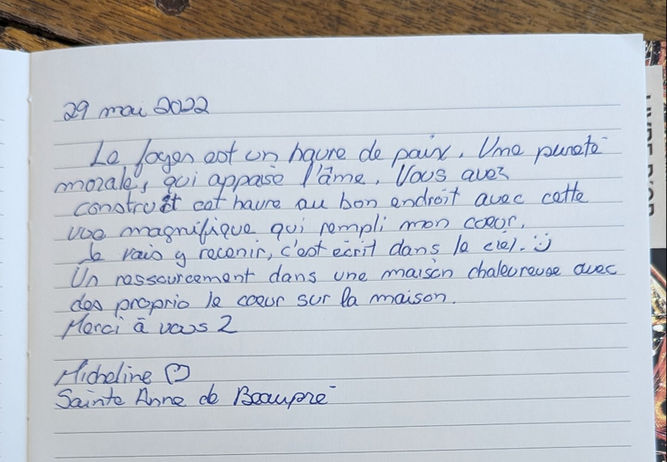 29 mai 2022
Le foyer est un havre de paix. Une pureté
morale, qui appaise l'âme. Vous avez
construit cet havre au bon endroit avec cette
vue magnifique qui rempli mon coeur.
Je vais y revenir, c'est écrit dans le ciel. :)
Un ressourcement dans une maison chaleureuse avec
des proprio le coeur sur la maison.
Merci à vous 2
Micheline ♡
Sainte Anne de Beaupré
LIVRE D'OR